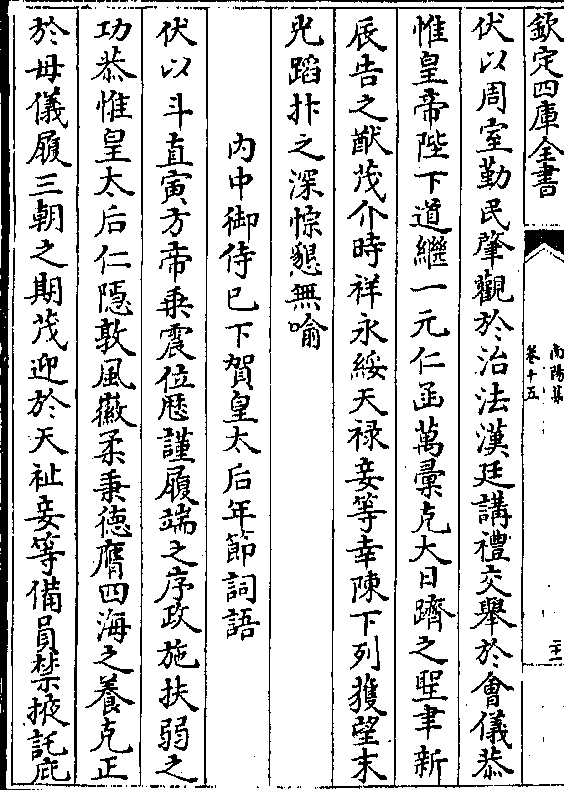 欽定四庫全書
南陽集
卷十五
二十一
伏以周室勤民肇觀於治法漢廷講禮交舉於會儀恭
惟皇帝陛下道繼一元仁函萬彚克大日躋之聖聿新
辰告之猷茂介時祥永綏天禄妾等幸陳下列獲望末
光蹈抃之深悰懇無喻
内中御侍已下賀皇太后年節詞語
伏以斗直寅方帝乗震位厯謹履端之序政施扶弱之
功恭惟皇太后仁隱敦風徽柔秉德膺四海之養克正
於母儀履三朝之期茂迎於天祉妾等備員禁掖託庇